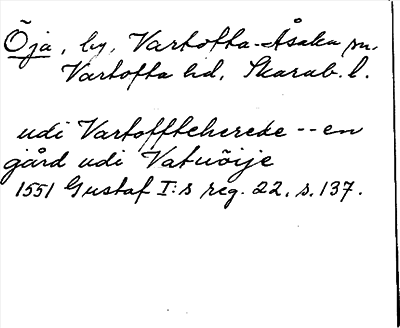 Öja, by, Vartofta-Åsaka sn.
Vartofta hd. Skarab. l.
udi Vartoffteherede -- en
gård udi Vatuöije
1551 Gustaf I:s reg. 22, s. 137.